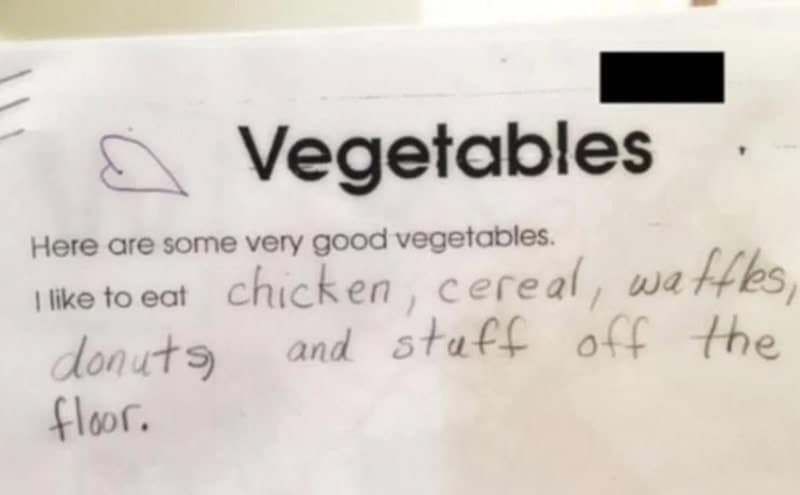 Vegetables
Here are some very good vegetables.
I like to eat chicken, cereal, waffles,
donuts, and stuff off the
floor.